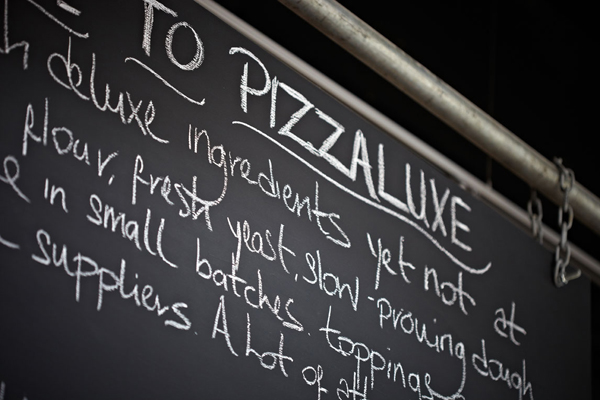 TO PIZZALUXE
deluxe ingredients yet not at
flour, fresh yeast, slow-proving dough
in small batches. toppings
suppliers. A lot of att